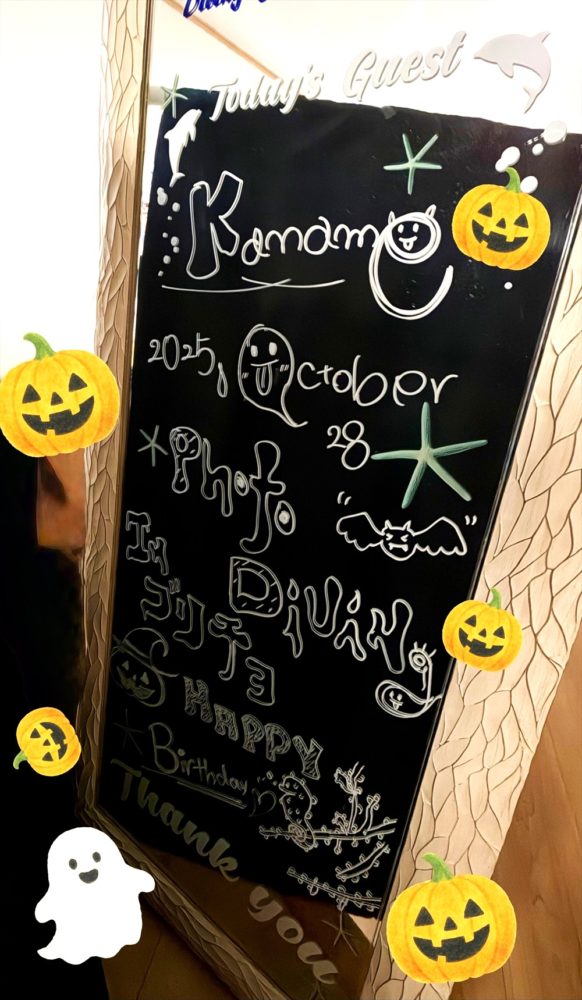 Today's Guest
Kaname
2025, October
28
Photo
Diving
In
ゴリチョ
HAPPY
Birthday
Thank you